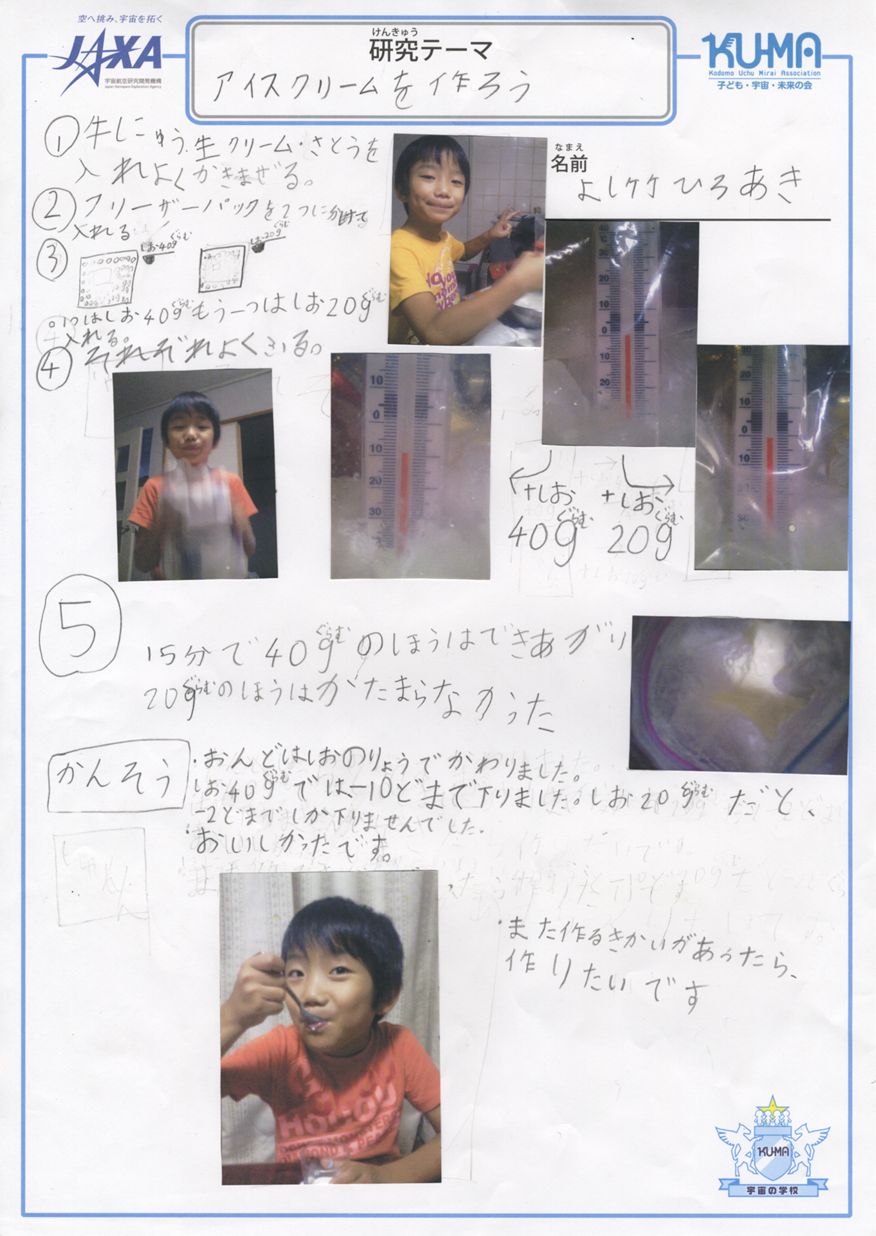 空へ挑み、宇宙を拓く
JAXA
宇宙航空研究開発機構
Japan Aerospace Exploration Agency
けんきゅう
研究テーマ
アイスクリームを作ろう
KU-MA
Kodomo Uchu Mirai Association
子ども・宇宙・未来の会
なまえ
名前
よしたけ ひろあき
① 牛にゅう、生クリーム・さとうを
入れよくかきまぜる。
② フリーザーパックを2つに分けて
入れる
③
しお40g ぐらむ
しお20g ぐらむ
1つはしお40g ぐらむ もう一つはしお20g ぐらむ
入れる。
④ それぞれよくふる。
+しお
40g ぐらむ
+しお
20g ぐらむ
5
15分で40g ぐらむ のほうはできあがり
20g ぐらむ のほうはかたまらなかった
かんそう
・おんどはしおのりょうでかわりました。
しお40g ぐらむ では-10どまで下りました。しお20g ぐらむ だと、
-2どまでしか下りませんでした。
・おいしかったです。
・また作るきかいがあったら、
作りたいです
KU-MA
宇宙の学校